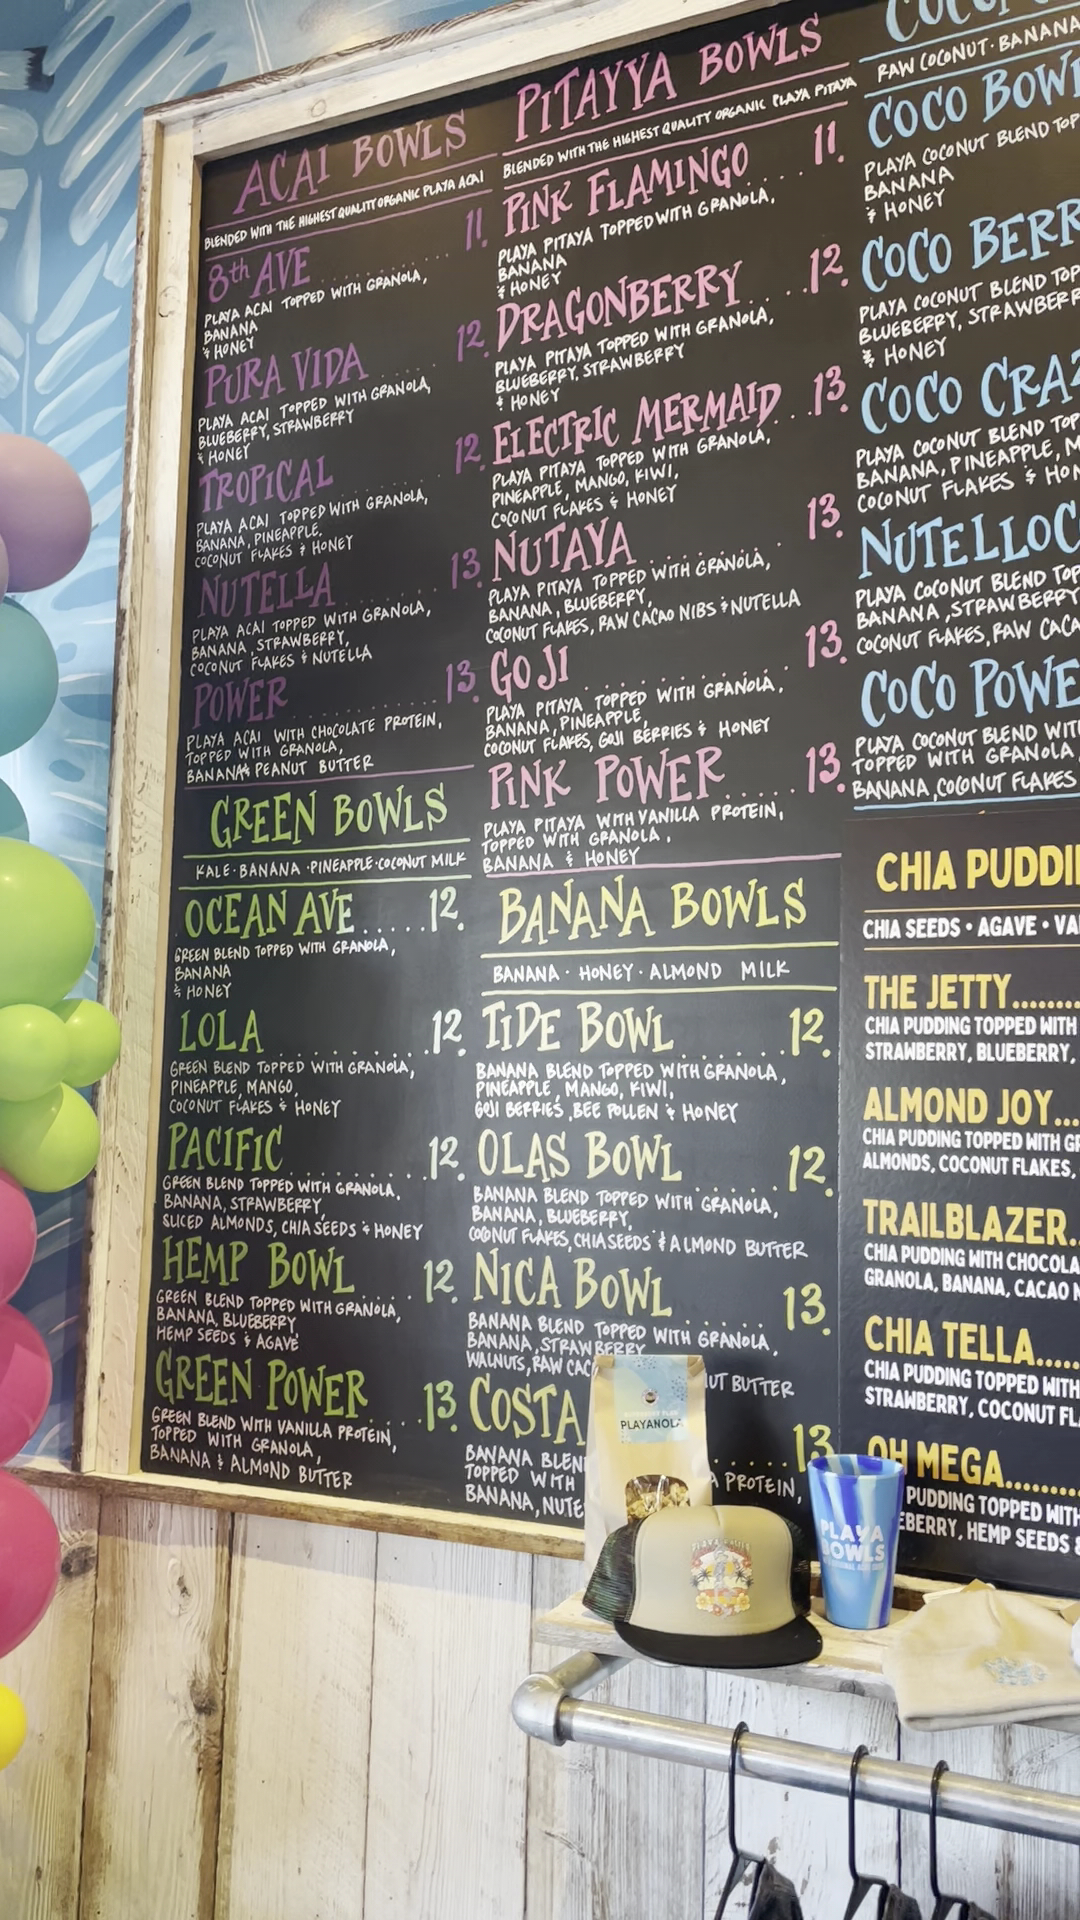 ACAI BOWLS
BLENDED WITH THE HIGHEST QUALITY ORGANIC PLAYA ACAI
8th AVE .......... 11.
PLAYA ACAI TOPPED WITH GRANOLA,
BANANA
& HONEY
PURA VIDA ...... 12.
PLAYA ACAI TOPPED WITH GRANOLA,
BLUEBERRY, STRAWBERRY
& HONEY
TROPICAL ....... 12.
PLAYA ACAI TOPPED WITH GRANOLA,
BANANA, PINEAPPLE,
COCONUT FLAKES & HONEY
NUTELLA ....... 13.
PLAYA ACAI TOPPED WITH GRANOLA,
BANANA, STRAWBERRY,
COCONUT FLAKES & NUTELLA
POWER .......... 13.
PLAYA ACAI WITH CHOCOLATE PROTEIN,
TOPPED WITH GRANOLA,
BANANA & PEANUT BUTTER
GREEN BOWLS
KALE · BANANA · PINEAPPLE · COCONUT MILK
OCEAN AVE ..... 12.
GREEN BLEND TOPPED WITH GRANOLA,
BANANA
& HONEY
LOLA .......... 12.
GREEN BLEND TOPPED WITH GRANOLA,
PINEAPPLE, MANGO,
COCONUT FLAKES & HONEY
PACIFIC ........ 12.
GREEN BLEND TOPPED WITH GRANOLA,
BANANA, STRAWBERRY,
SLICED ALMONDS, CHIA SEEDS & HONEY
HEMP BOWL .... 12.
GREEN BLEND TOPPED WITH GRANOLA,
BANANA, BLUEBERRY
HEMP SEEDS & AGAVE
GREEN POWER .... 13.
GREEN BLEND WITH VANILLA PROTEIN,
TOPPED WITH GRANOLA,
BANANA & ALMOND BUTTER
PITAYYA BOWLS
BLENDED WITH THE HIGHEST QUALITY ORGANIC PLAYA PITAYA
PINK FLAMINGO .... 11.
PLAYA PITAYA TOPPED WITH GRANOLA,
BANANA
& HONEY
DRAGONBERRY .... 12.
PLAYA PITAYA TOPPED WITH GRANOLA,
BLUEBERRY, STRAWBERRY
& HONEY
ELECTRIC MERMAID .. 13.
PLAYA PITAYA TOPPED WITH GRANOLA,
PINEAPPLE, MANGO, KIWI,
COCONUT FLAKES & HONEY
NUTAYA ......... 13.
PLAYA PITAYA TOPPED WITH GRANOLA,
BANANA, BLUEBERRY,
COCONUT FLAKES, RAW CACAO NIBS & NUTELLA
GOJI ........... 13.
PLAYA PITAYA TOPPED WITH GRANOLA,
BANANA, PINEAPPLE,
COCONUT FLAKES, GOJI BERRIES & HONEY
PINK POWER ..... 13.
PLAYA PITAYA WITH VANILLA PROTEIN,
TOPPED WITH GRANOLA,
BANANA & HONEY
BANANA BOWLS
BANANA · HONEY · ALMOND MILK
TIDE BOWL ...... 12.
BANANA BLEND TOPPED WITH GRANOLA,
PINEAPPLE, MANGO, KIWI,
GOJI BERRIES, BEE POLLEN & HONEY
OLAS BOWL ...... 12.
BANANA BLEND TOPPED WITH GRANOLA,
BANANA, BLUEBERRY,
COCONUT FLAKES, CHIA SEEDS & ALMOND BUTTER
NICA BOWL ...... 13.
BANANA BLEND TOPPED WITH GRANOLA,
BANANA, STRAWBERRY
WALNUTS, RAW CAC UT BUTTER
COSTA ..... 13
BANANA BLEN A PROTEIN,
TOPPED WITH
BANANA, NUTE
RAW COCONUT · BANANA
COCO BOW
PLAYA COCONUT BLEND TOP
BANANA
& HONEY
COCO BERR
PLAYA COCONUT BLEND TOP
BLUEBERRY, STRAWBERR
& HONEY
COCO CRAZ
PLAYA COCONUT BLEND TOP
BANANA, PINEAPPLE, M
COCONUT FLAKES & HON
NUTELLOC
PLAYA COCONUT BLEND TOP
BANANA, STRAWBERRY
COCONUT FLAKES, RAW CACA
COCO POWE
PLAYA COCONUT BLEND WIT
TOPPED WITH GRANOLA
BANANA, COCONUT FLAKES
CHIA PUDDI
CHIA SEEDS • AGAVE • VA
THE JETTY.........
CHIA PUDDING TOPPED WITH
STRAWBERRY, BLUEBERRY,
ALMOND JOY....
CHIA PUDDING TOPPED WITH GR
ALMONDS, COCONUT FLAKES,
TRAILBLAZER..
CHIA PUDDING WITH CHOCOLA
GRANOLA, BANANA, CACAO N
CHIA TELLA.....
CHIA PUDDING TOPPED WITH
STRAWBERRY, COCONUT FL
OH MEGA.......
PUDDING TOPPED WITH
EBERRY, HEMP SEEDS &
PLAYANOLA
PLAYA
BOWLS